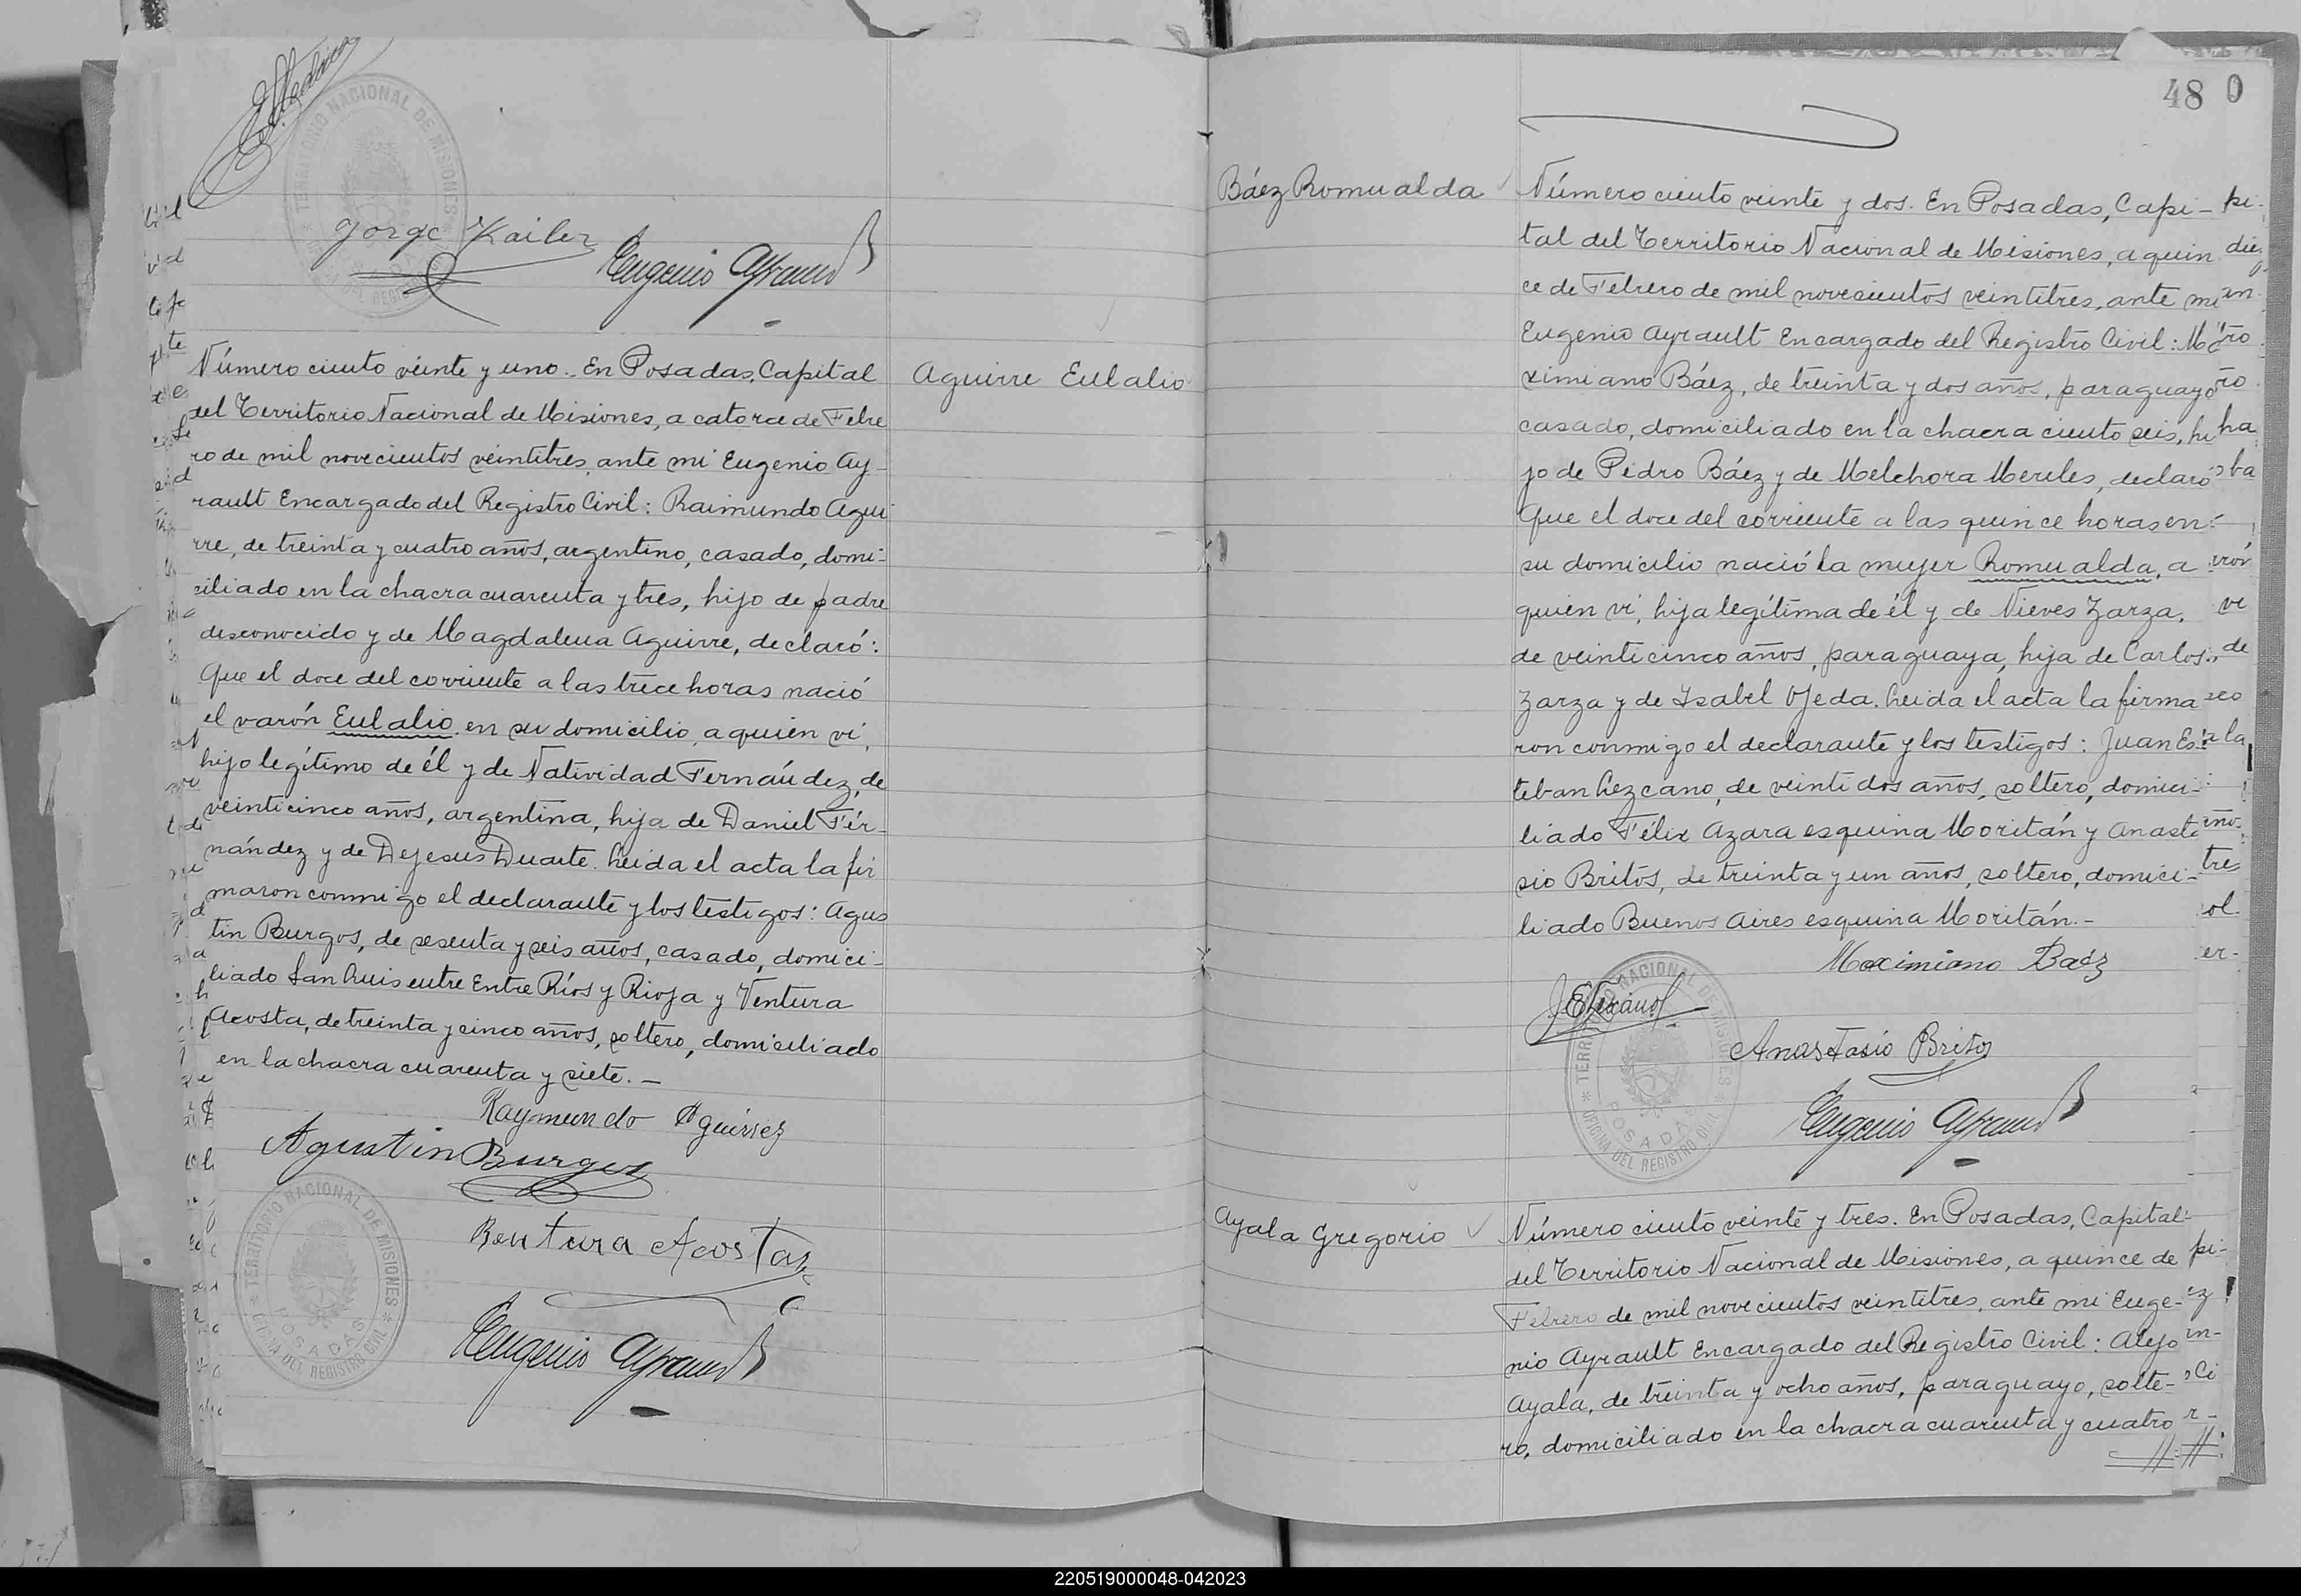 Jorge Kailer
Eugenio Ayrault
Número ciento veinte y uno. En Posadas, Capital
del Territorio Nacional de Misiones, a catorce de Febre
ro de mil novecientos veintitres, ante mi Eugenio Ay-
rault Encargado del Registro Civil: Raimundo Agui
rre, de treinta y cuatro años, argentino, casado, domi-
ciliado en la chacra cuarenta y tres, hijo de padre
desconocido y de Magdalena Aguirre, declaró:
Que el doce del corriente a las trece horas nació
el varón Eulalio en su domicilio, a quien vi,
hijo legítimo de él y de Natividad Fernández, de
veinticinco años, argentina, hija de Daniel Fer-
nández y de Dejesus Duarte. Leida el acta la fir
maron conmigo el declarante y los testigos: Agus
tin Burgos, de sesenta y seis años, casado, domici-
liado San Luis entre Entre Ríos y Rioja y Ventura
Acosta, de treinta y cinco años, soltero, domiciliado
en la chacra cuarenta y siete. -
Raymundo Aguirrez
Agustin Burgos
Bentura Acosta
Eugenio Ayrault
TERRITORIO NACIONAL DE MISIONES
OFICINA DEL REGISTRO CIVIL
POSADAS
Aguirre Eulalio
480
Báez Romualda
Número ciento veinte y dos. En Posadas, Capi-
tal del Territorio Nacional de Misiones, a quin
ce de Febrero de mil novecientos veintitres, ante mi
Eugenio Ayrault Encargado del Registro Civil: Ma
ximiano Báez, de treinta y dos años, paraguayo
casado, domiciliado en la chacra ciento seis, hi
jo de Pedro Báez y de Melchora Mereles, declaró
Que el doce del corriente a las quince horas en
su domicilio nació la mujer Romualda, a
quien vi, hija legítima de él y de Nieves Zarza,
de veinticinco años, paraguaya, hija de Carlos
Zarza y de Isabel Ojeda. Leida el acta la firma
ron conmigo el declarante y los testigos: Juan Es-
teban Lezcano, de veintidos años, soltero, domici-
liado Félix Azara esquina Moritán y Anasta
sio Britos, de treinta y un años, soltero, domici-
liado Buenos Aires esquina Moritán. -
Maximiano Baéz
Anastasio Britos
Eugenio Ayrault
TERRITORIO NACIONAL DE MISIONES
OFICINA DEL REGISTRO CIVIL
POSADAS
Ayala Gregorio
Número ciento veinte y tres. En Posadas, Capital
del Territorio Nacional de Misiones, a quince de
Febrero de mil novecientos veintitres, ante mi Euge-
nio Ayrault Encargado del Registro Civil: Alejo
Ayala, de treinta y ocho años, paraguayo, solte-
ro, domiciliado en la chacra cuarenta y cuatro
220519000048-042023